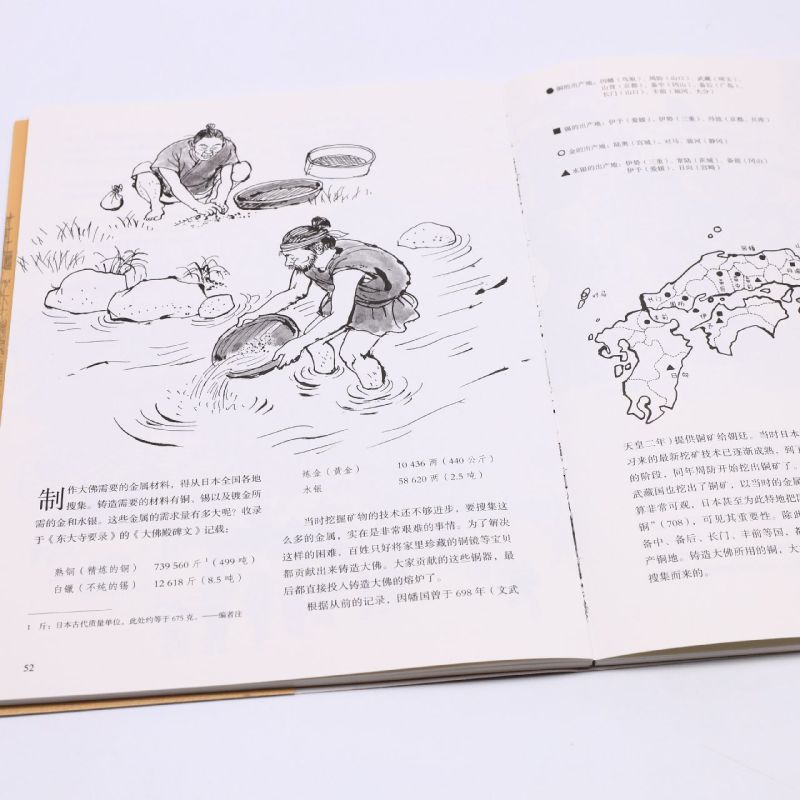 制作大佛需要的金属材料，得从日本全国各地
搜集。铸造需要的材料有铜、锡以及镀金所
需的金和水银。这些金属的需求量有多大呢？收录
于《东大寺要录》的《大佛殿碑文》记载：
熟铜（精炼的铜） 739 560 斤¹（499 吨）
白镴（不纯的锡） 12 618 斤（8.5 吨）
1 斤：日本古代质量单位。此处约等于 675 克。——编者注
52
炼金（黄金） 10 436 两（440 公斤）
水银 58 620 两（2.5 吨）
当时挖掘矿物的技术还不够进步，要搜集这
么多的金属，实在是非常艰难的事情。为了解决
这样的困难，百姓只好将家里珍藏的铜镜等宝贝
都贡献出来铸造大佛。大家贡献的这些铜器，最
后都直接投入铸造大佛的熔炉了。
根据从前的记录，因幡国曾于 698 年（文武
●铜的出产地：因幡（鸟取）、周防（山口）、武藏（埼玉）、
山背（京都）、备中（冈山）、备后（广岛）、
长门（山口）、丰前（福冈、大分）
■锡的出产地：伊予（爱媛）、伊势（三重）、丹波（京都、兵库）
○金的出产地：陆奥（宫城）、对马、骏河（静冈）
▲水银的出产地：伊势（三重）、常陆（茨城）、备前（冈山）
伊予（爱媛）、日向（宫崎）
因幡
对马
长门
周防
丰前
伊予
日向
天皇二年）提供铜矿给朝廷。当时日本
习来的最新挖矿技术已逐渐成熟，到了
的阶段，同年周防开始挖出铜矿了。
武藏国也挖出了铜矿，以当时的金属
算非常可观，日本甚至为此特地把
铜”（708），可见其重要性。除此
备中、备后、长门、丰前等国，都
产铜地。铸造大佛所用的铜，大
搜集而来的。